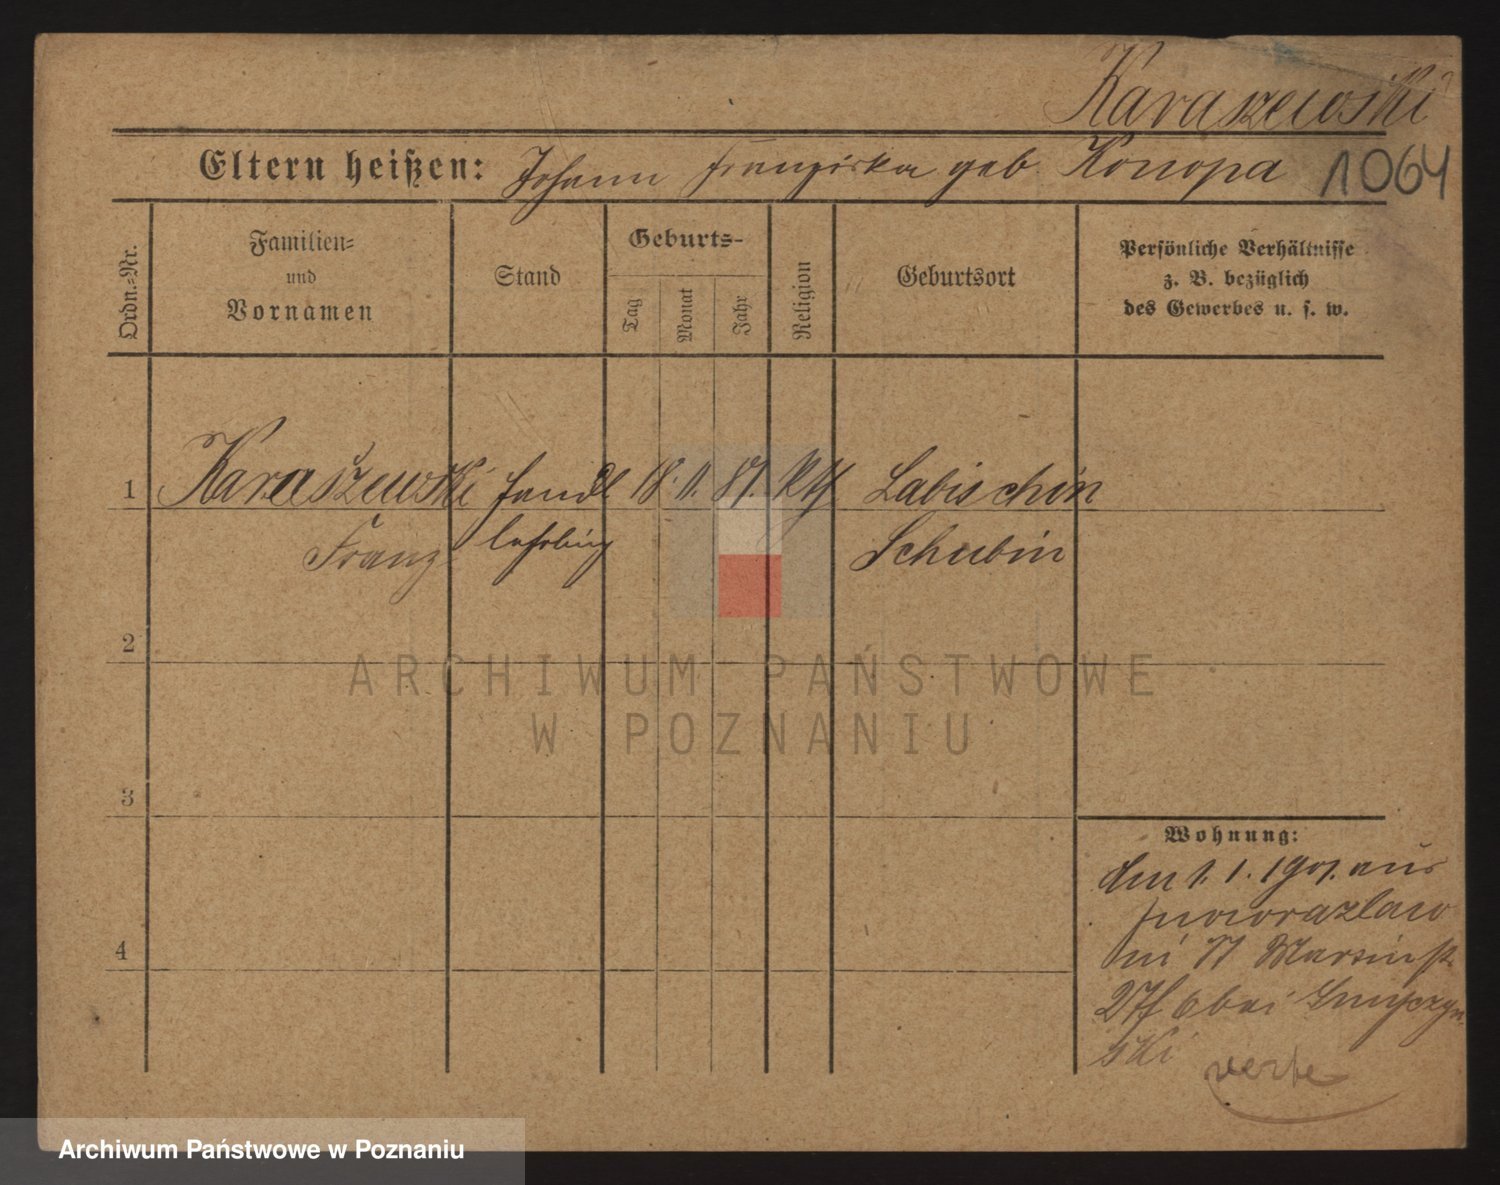 Karaszewski
Eltern heißen: Johann Franziska geb. Konopa 1064
Ordn.-Nr.
Familien-
und
Vornamen
Stand
Geburts-
Tag
Monat
Jahr
Religion
Geburtsort
Persönliche Verhältnisse
z. B. bezüglich
des Gewerbes u. s. w.
1 Karaszewski Handl 18. 11. 81. Kth Labischin
Franz lehrling Schubin
2
3
4
Wohnung:
den 1. 1. 1901. aus
Inowrazlaw
in St Martinstr
27 6 bei
ski
ARCHIWUM PAŃSTWOWE
W POZNANIU
Archiwum Państwowe w Poznaniu